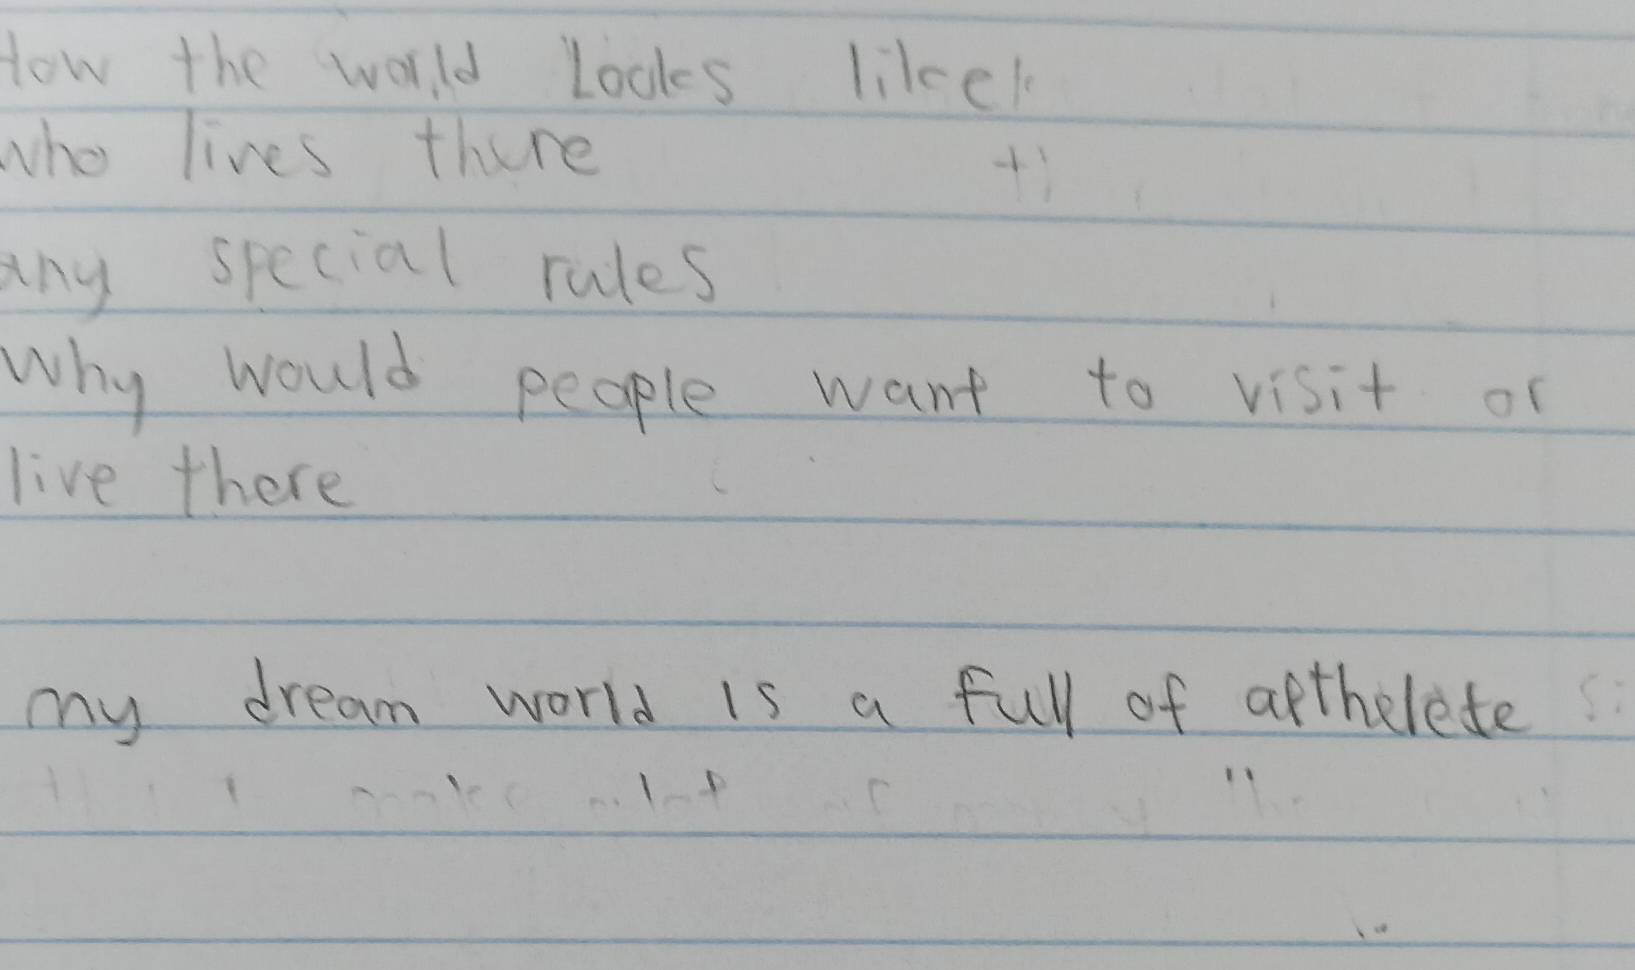 How the world Looks like
who lives there
any special rules
Why would people want to visit or
live there
my dream world is a full of apthelete